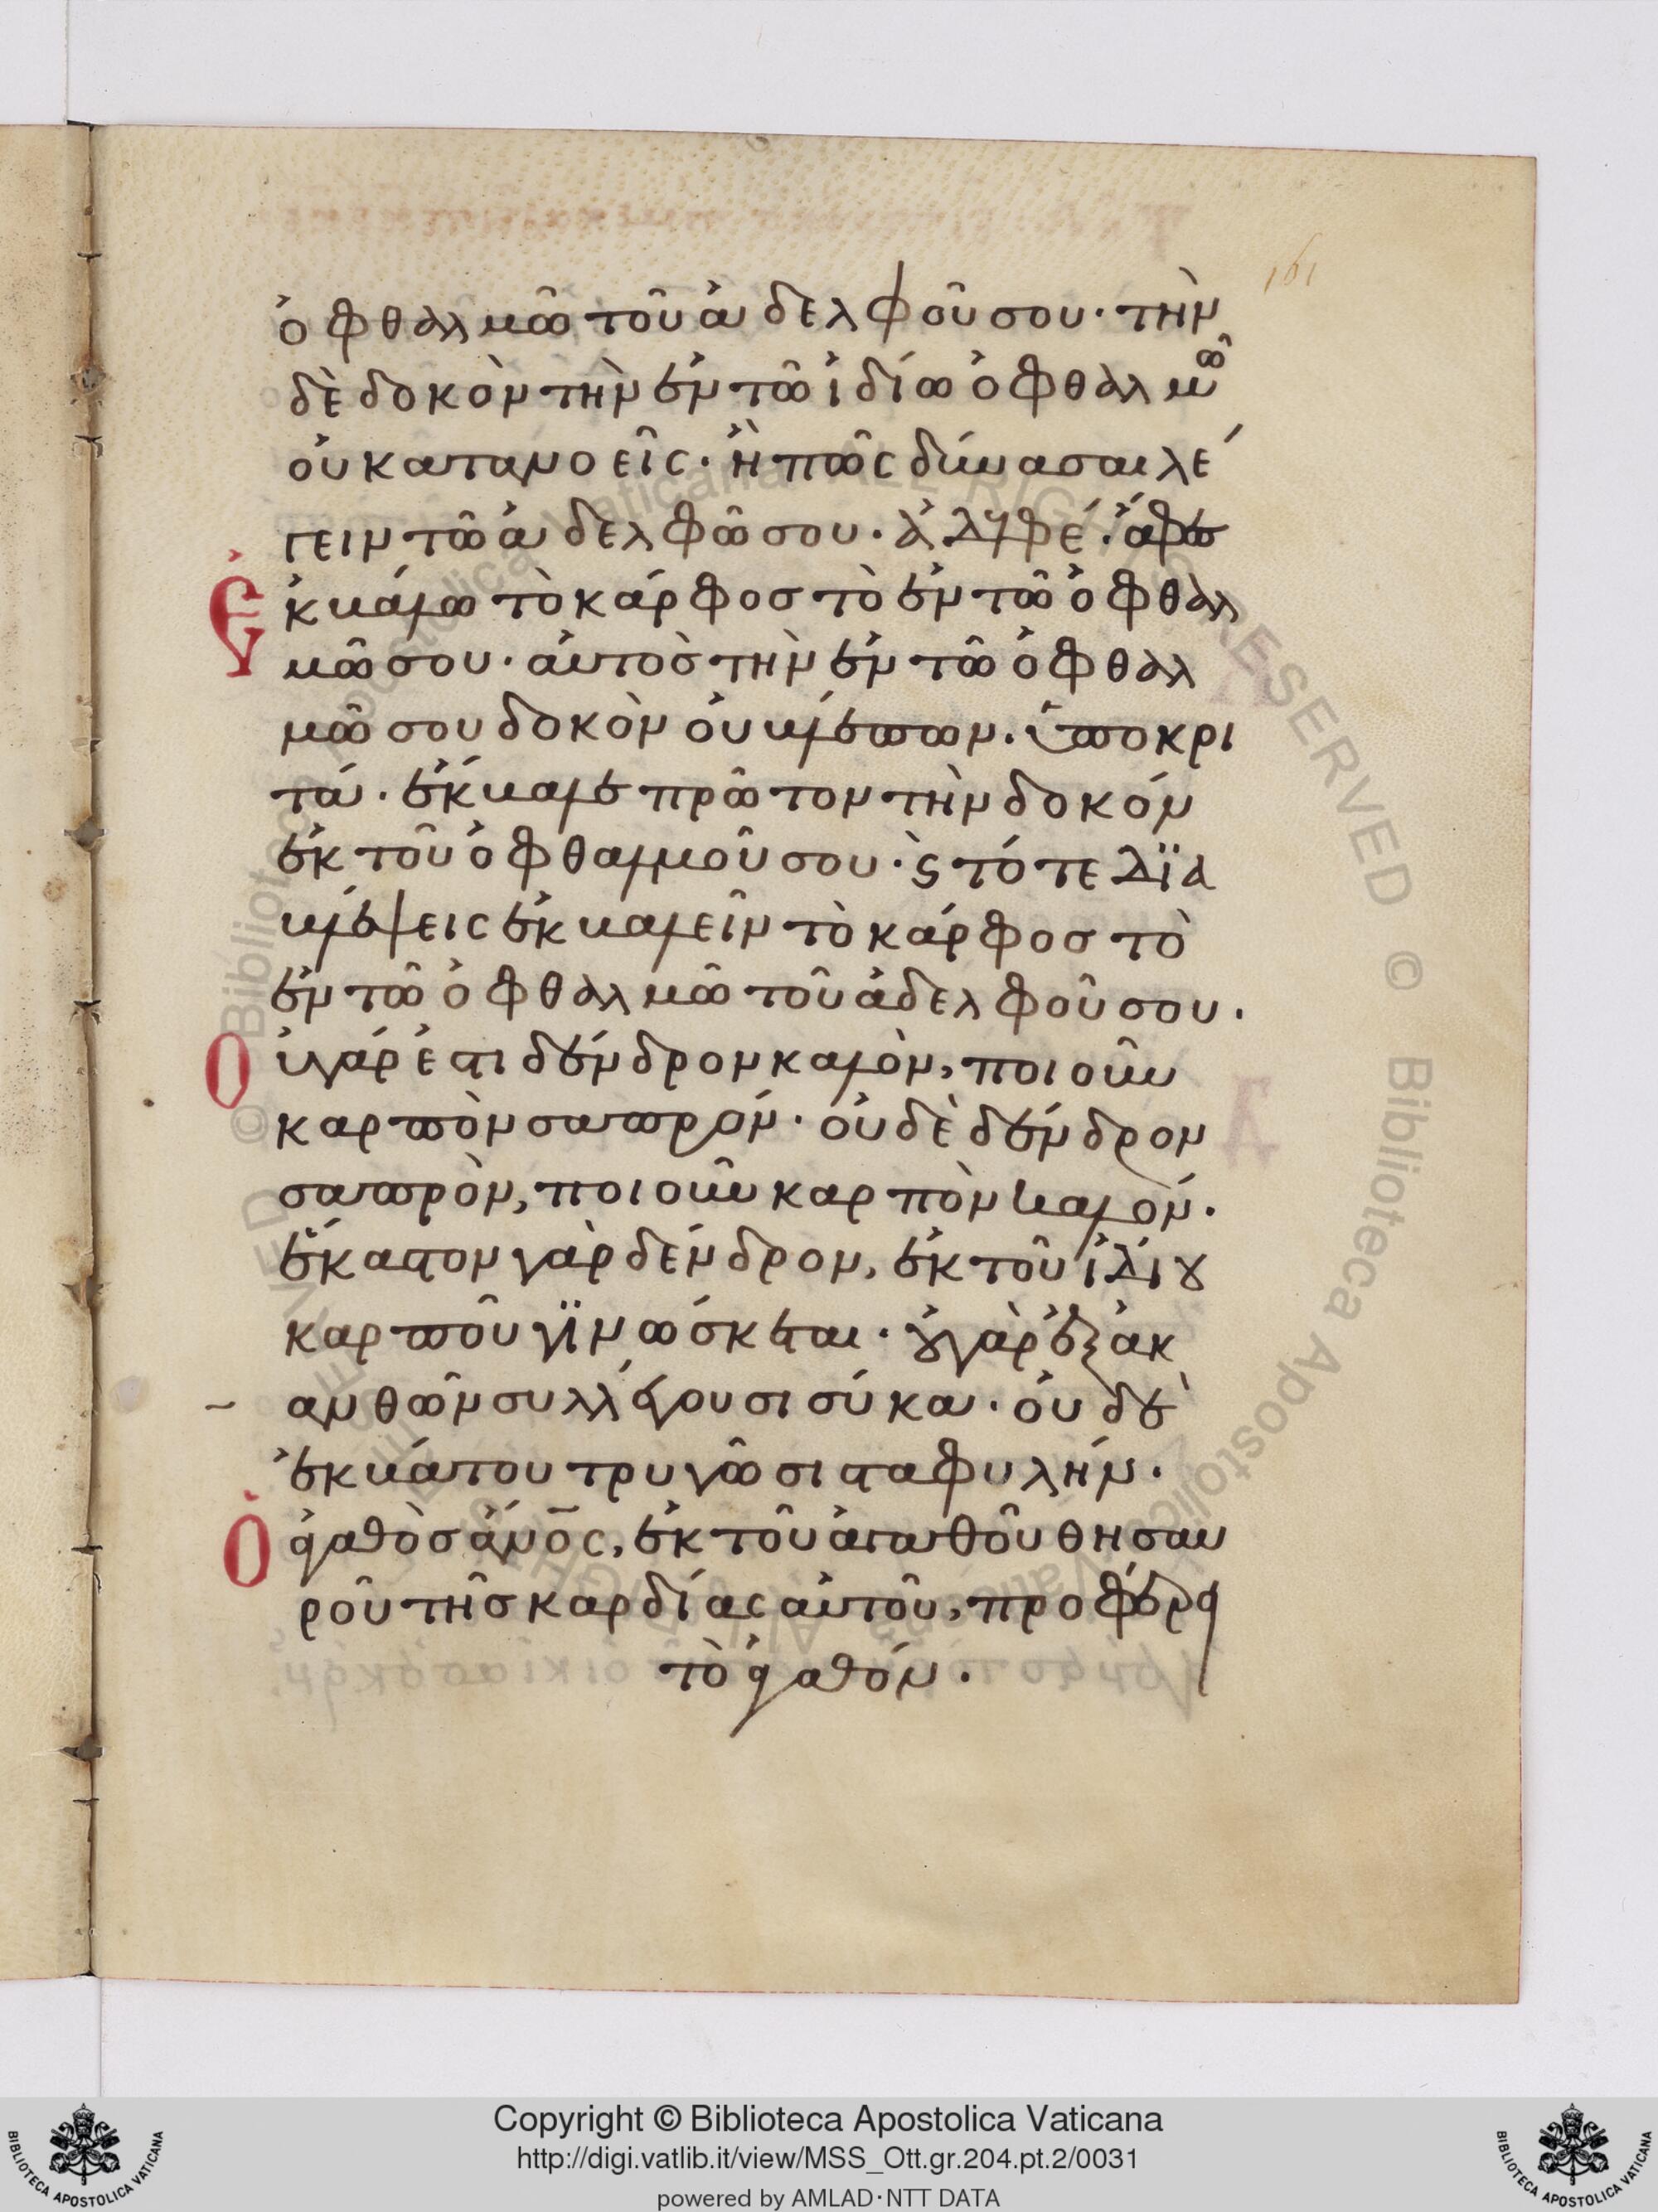 161
ὀφθαλμῶ τοῦ ἀδελφοῦ σου· τὴν
δὲ δοκὸν τὴν ἐν τῶ ἰδίω ὀφθαλμῶ
οὐ κατανοεῖς· ἢ πῶς δύνασαι λέ
γειν τῶ ἀδελφῶ σου· ἀδελφέ· ἄφες
Ἐκβάλω τὸ κάρφος τὸ ἐν τῶ ὀφθαλ
μῶ σου· αὐτὸς τὴν ἐν τῶ ὀφθαλ
μῶ σου δοκὸν οὐ βλέπων· ὑποκρι
τά· ἔκβαλε πρῶτον τὴν δοκόν
ἐκ τοῦ ὀφθαλμοῦ σου· ϗ τότε δϊα
βλέψεις ἐκβαλεῖν τὸ κάρφος τὸ
ἐν τῶ ὀφθαλμῶ τοῦ ἀδελφοῦ σου·
Οὐ γάρ ἐστι δένδρον καλὸν, ποιοῦν
καρπὸν σαπρόν· οὐδὲ δένδρον
σαπρὸν, ποιοῦν καρπὸν καλόν·
ἕκαστον γὰρ δένδρον, ἐκ τοῦ ἰδίου
καρποῦ γϊνώσκεται· οὐ γὰρ ἐξ ἀκ
ανθῶν συλλέγουσι σύκα· οὐδὲ
ἐκ βάτου τρυγῶσι σταφυλήν·
Ὁ ἀγαθὸς ἄνο̅ς, ἐκ τοῦ ἀγαθοῦ θησαυ
ροῦ τῆς καρδίας αὐτοῦ, προφέρει
τὸ ἀγαθόν·
© Biblioteca Apostolica Vaticana ALL RIGHTS RESERVED
Copyright © Biblioteca Apostolica Vaticana
http://digi.vatlib.it/view/MSS_Ott.gr.204.pt.2/0031
powered by AMLAD·NTT DATA
BIBLIOTECA APOSTOLICA VATICANA
BIBLIOTECA APOSTOLICA VATICANA